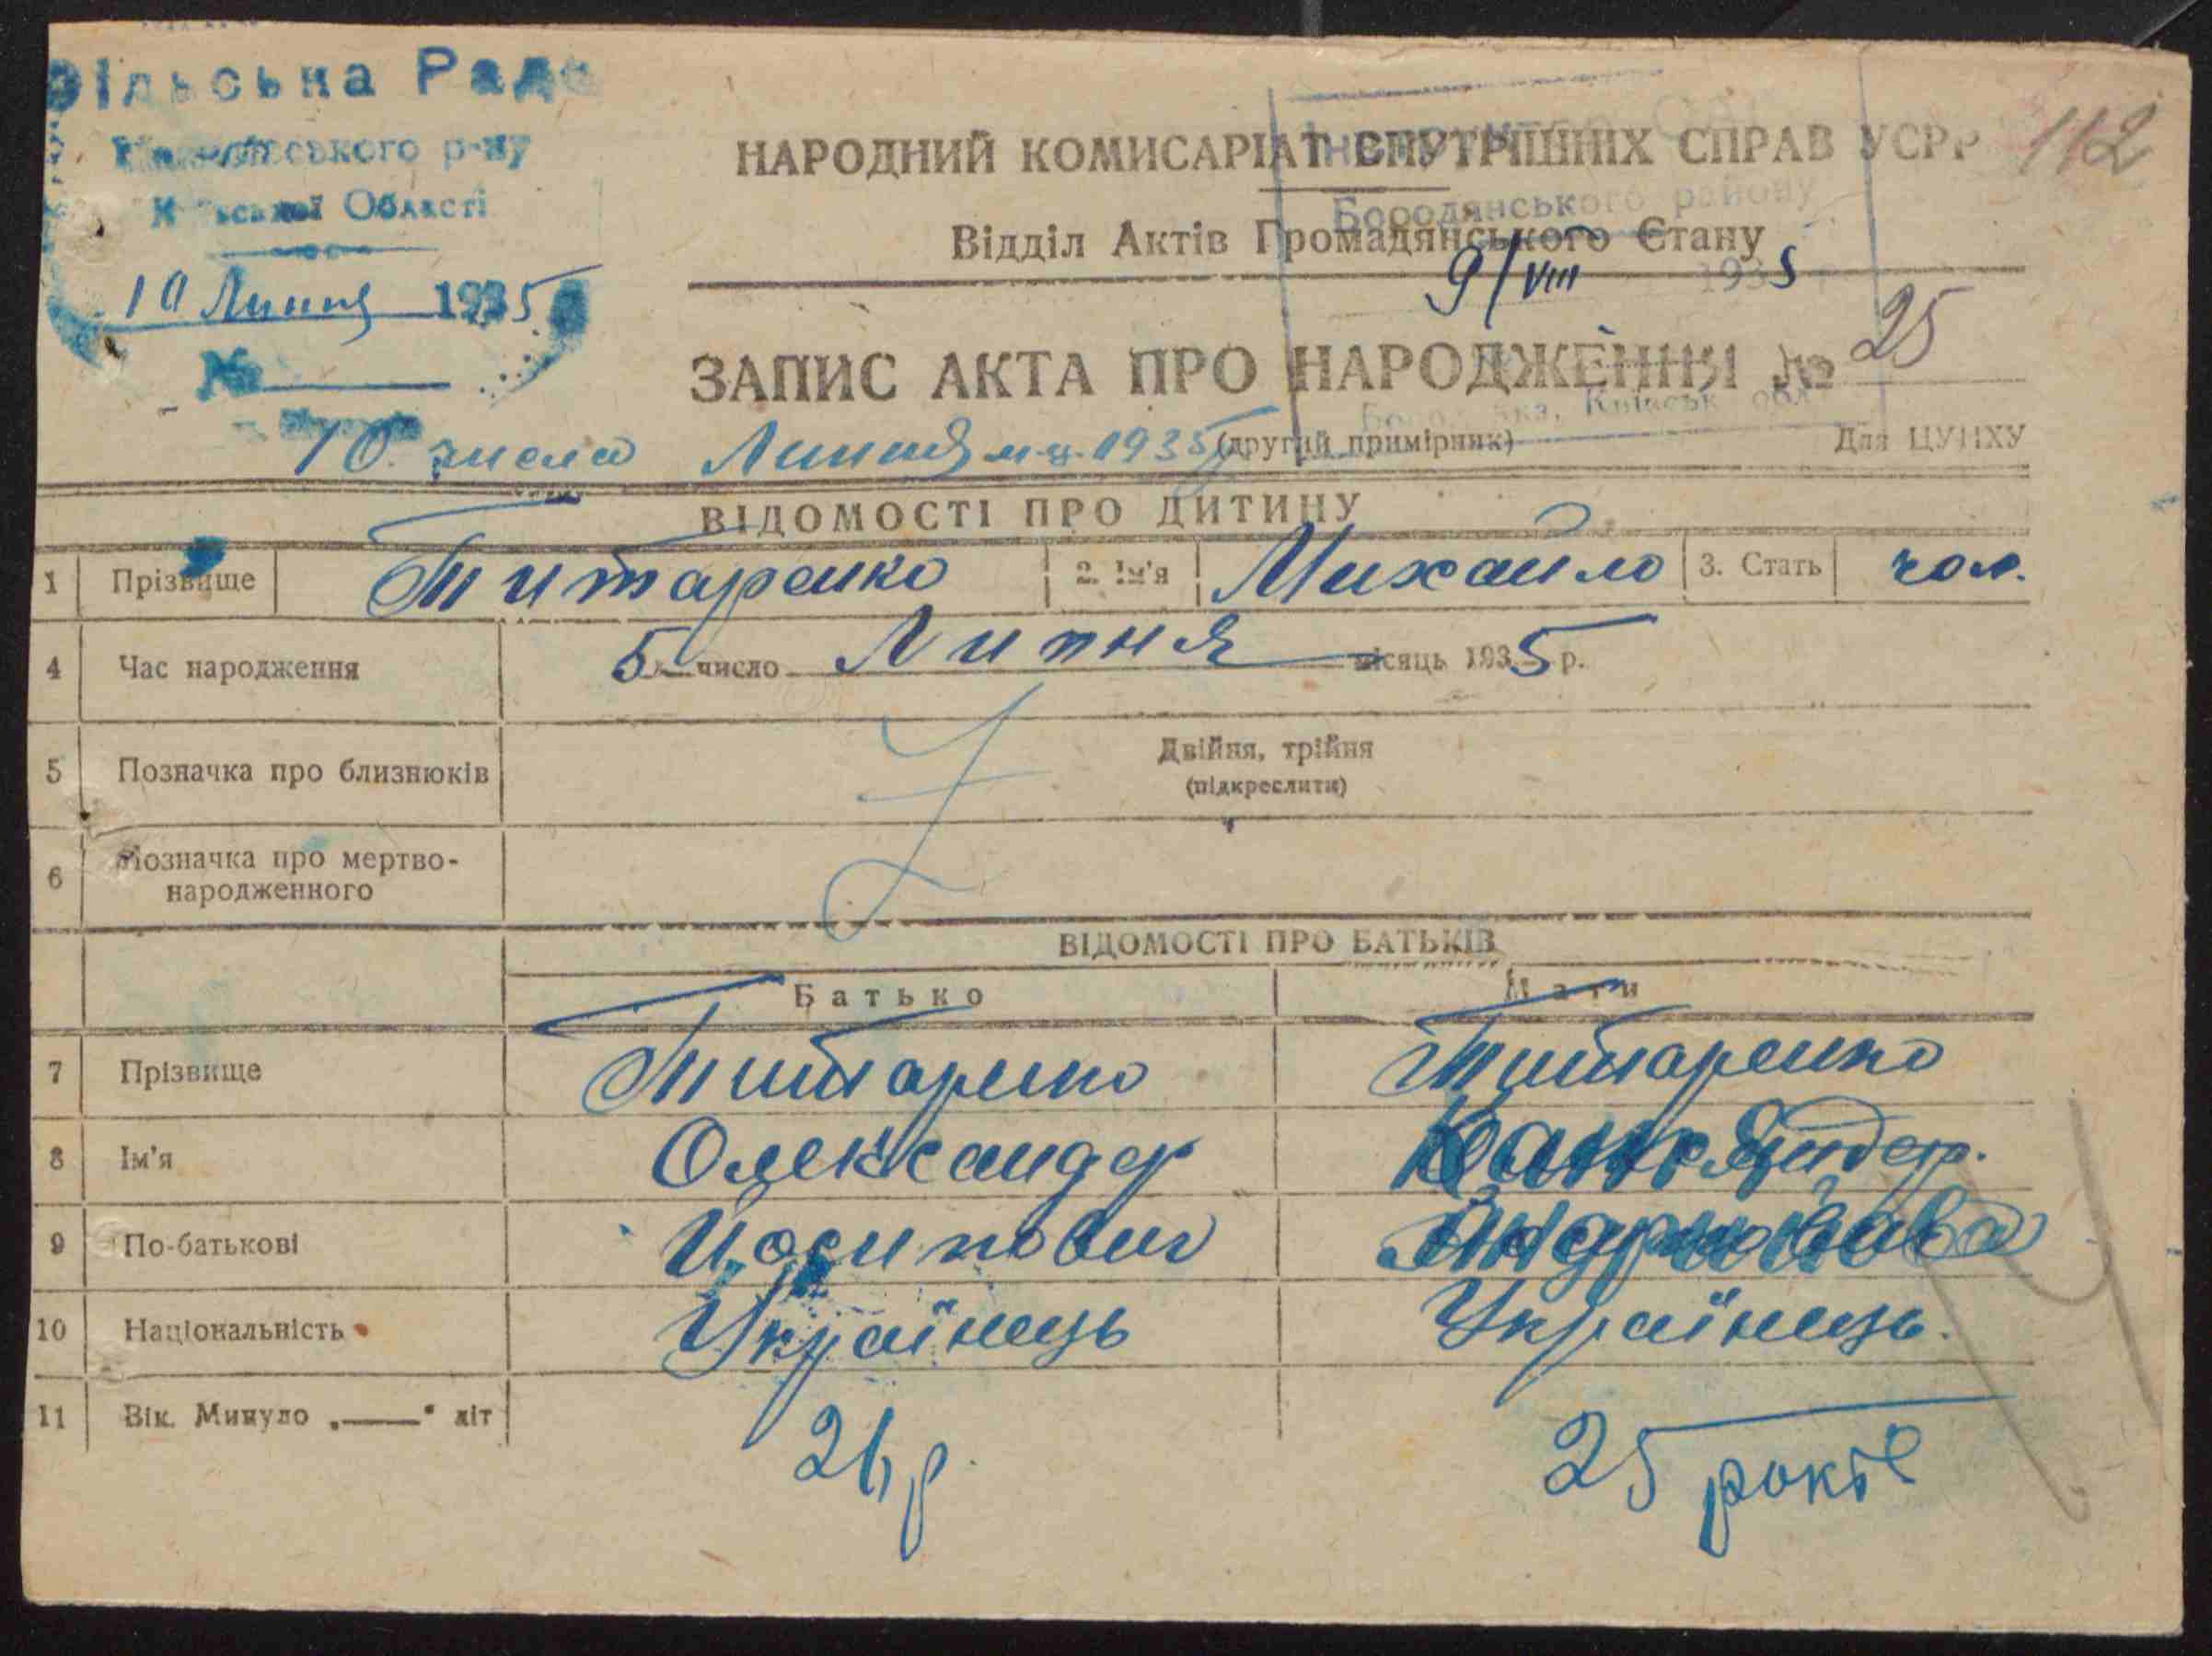 Сільська Рада
р-ну
Київської Області
10 Липня 1935
№
112
Інспектор
НАРОДНИЙ КОМИСАРІАТ ВНУТРІШНІХ СПРАВ УСРР
Бородянського району
Відділ Актів Громадянського Стану
9/VIII 1935
ЗАПИС АКТА ПРО НАРОДЖЕННЯ № 25
Київськ. обл.
10 числа Липня м-ця 1935 (другий примірник) Для ЦУНХУ
ВІДОМОСТІ ПРО ДИТИНУ
1 Прізвище Титаренко 2. Ім'я Михайло 3. Стать чол.
4 Час народження 5 число Липня місяць 1935 р.
5 Позначка про близнюків Двійня, трійня
(підкреслити)
6 Позначка про мертво-
народженного
ВІДОМОСТІ ПРО БАТЬКІВ
Батько Мати
7 Прізвище Титаренко Титаренко
8 Ім'я Олександр
9 По-батькові Йосипович
10 Національність Українець Українець.
11 Вік. Минуло „—" літ 26 р. 25 років